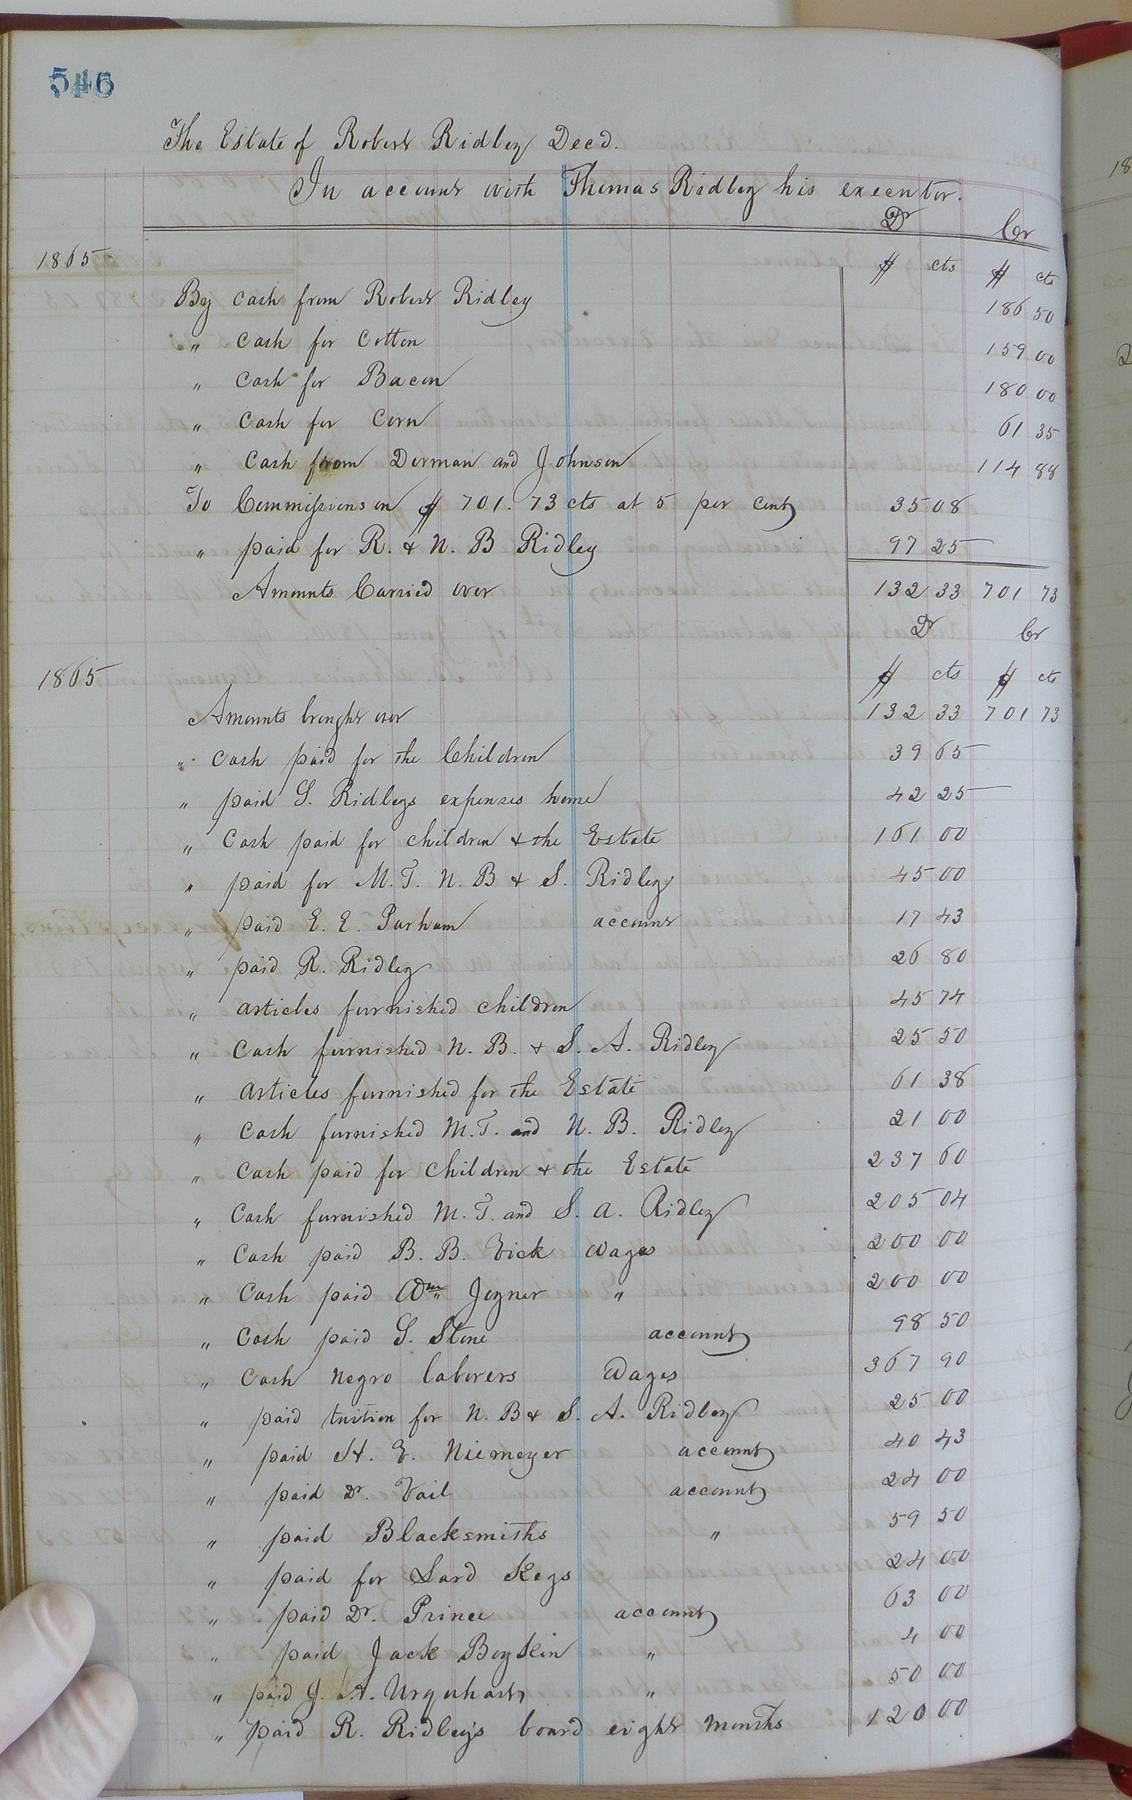 546
The Estate of Robert Ridley Decd.
In account with Thomas Ridley his executor.
Dr Cr
1865 $ cts $ cts
By cash from Robert Ridley 186 50
" Cash for Cotton 159 00
" Cash for Bacon 180 00
" Cash for Corn 61 35
" Cash from Dorman and Johnson 114 88
To Commissions on $701.73 cts at 5 per cent 35 08
" paid for R. & N. B Ridley 97 25
Amounts Carried over 132 33 701 73
Dr Cr
1865 $ cts $ cts
Amounts brought over 132 33 701 73
" Cash paid for the Children 39 65
" paid S. Ridleys expenses home 42 25
" Cash paid for children & the Estate 161 00
" paid for M. T. N. B & S. Ridley 45 00
" paid E. E. Parham account 17 43
" paid R. Ridley 26 80
" articles furnished children 45 74
" Cash furnished N. B. & S. A. Ridley 25 50
" articles furnished for the Estate 61 38
" Cash furnished M. T. and N. B. Ridley 21 00
" Cash paid for children & the Estate 237 60
" Cash furnished M. T. and S. A. Ridley 205 04
" Cash paid B. B. Vick Wages 200 00
" Cash paid Wm Joyner " 200 00
" Cash paid S. Stone account 98 50
" Cash negro laborers Wages 367 90
" paid tuition for N. B & S. A. Ridley 25 00
" paid H. E. Niemeyer account 40 43
" paid Dr. Vail account 24 00
" paid Blacksmiths " 59 50
" paid for Lard Kegs 24 00
" paid Dr. Prince account 63 00
" paid Jack Boykin " 4 00
" paid J. A. Urquhart " 50 00
" paid R. Ridley's board eight months 120 00